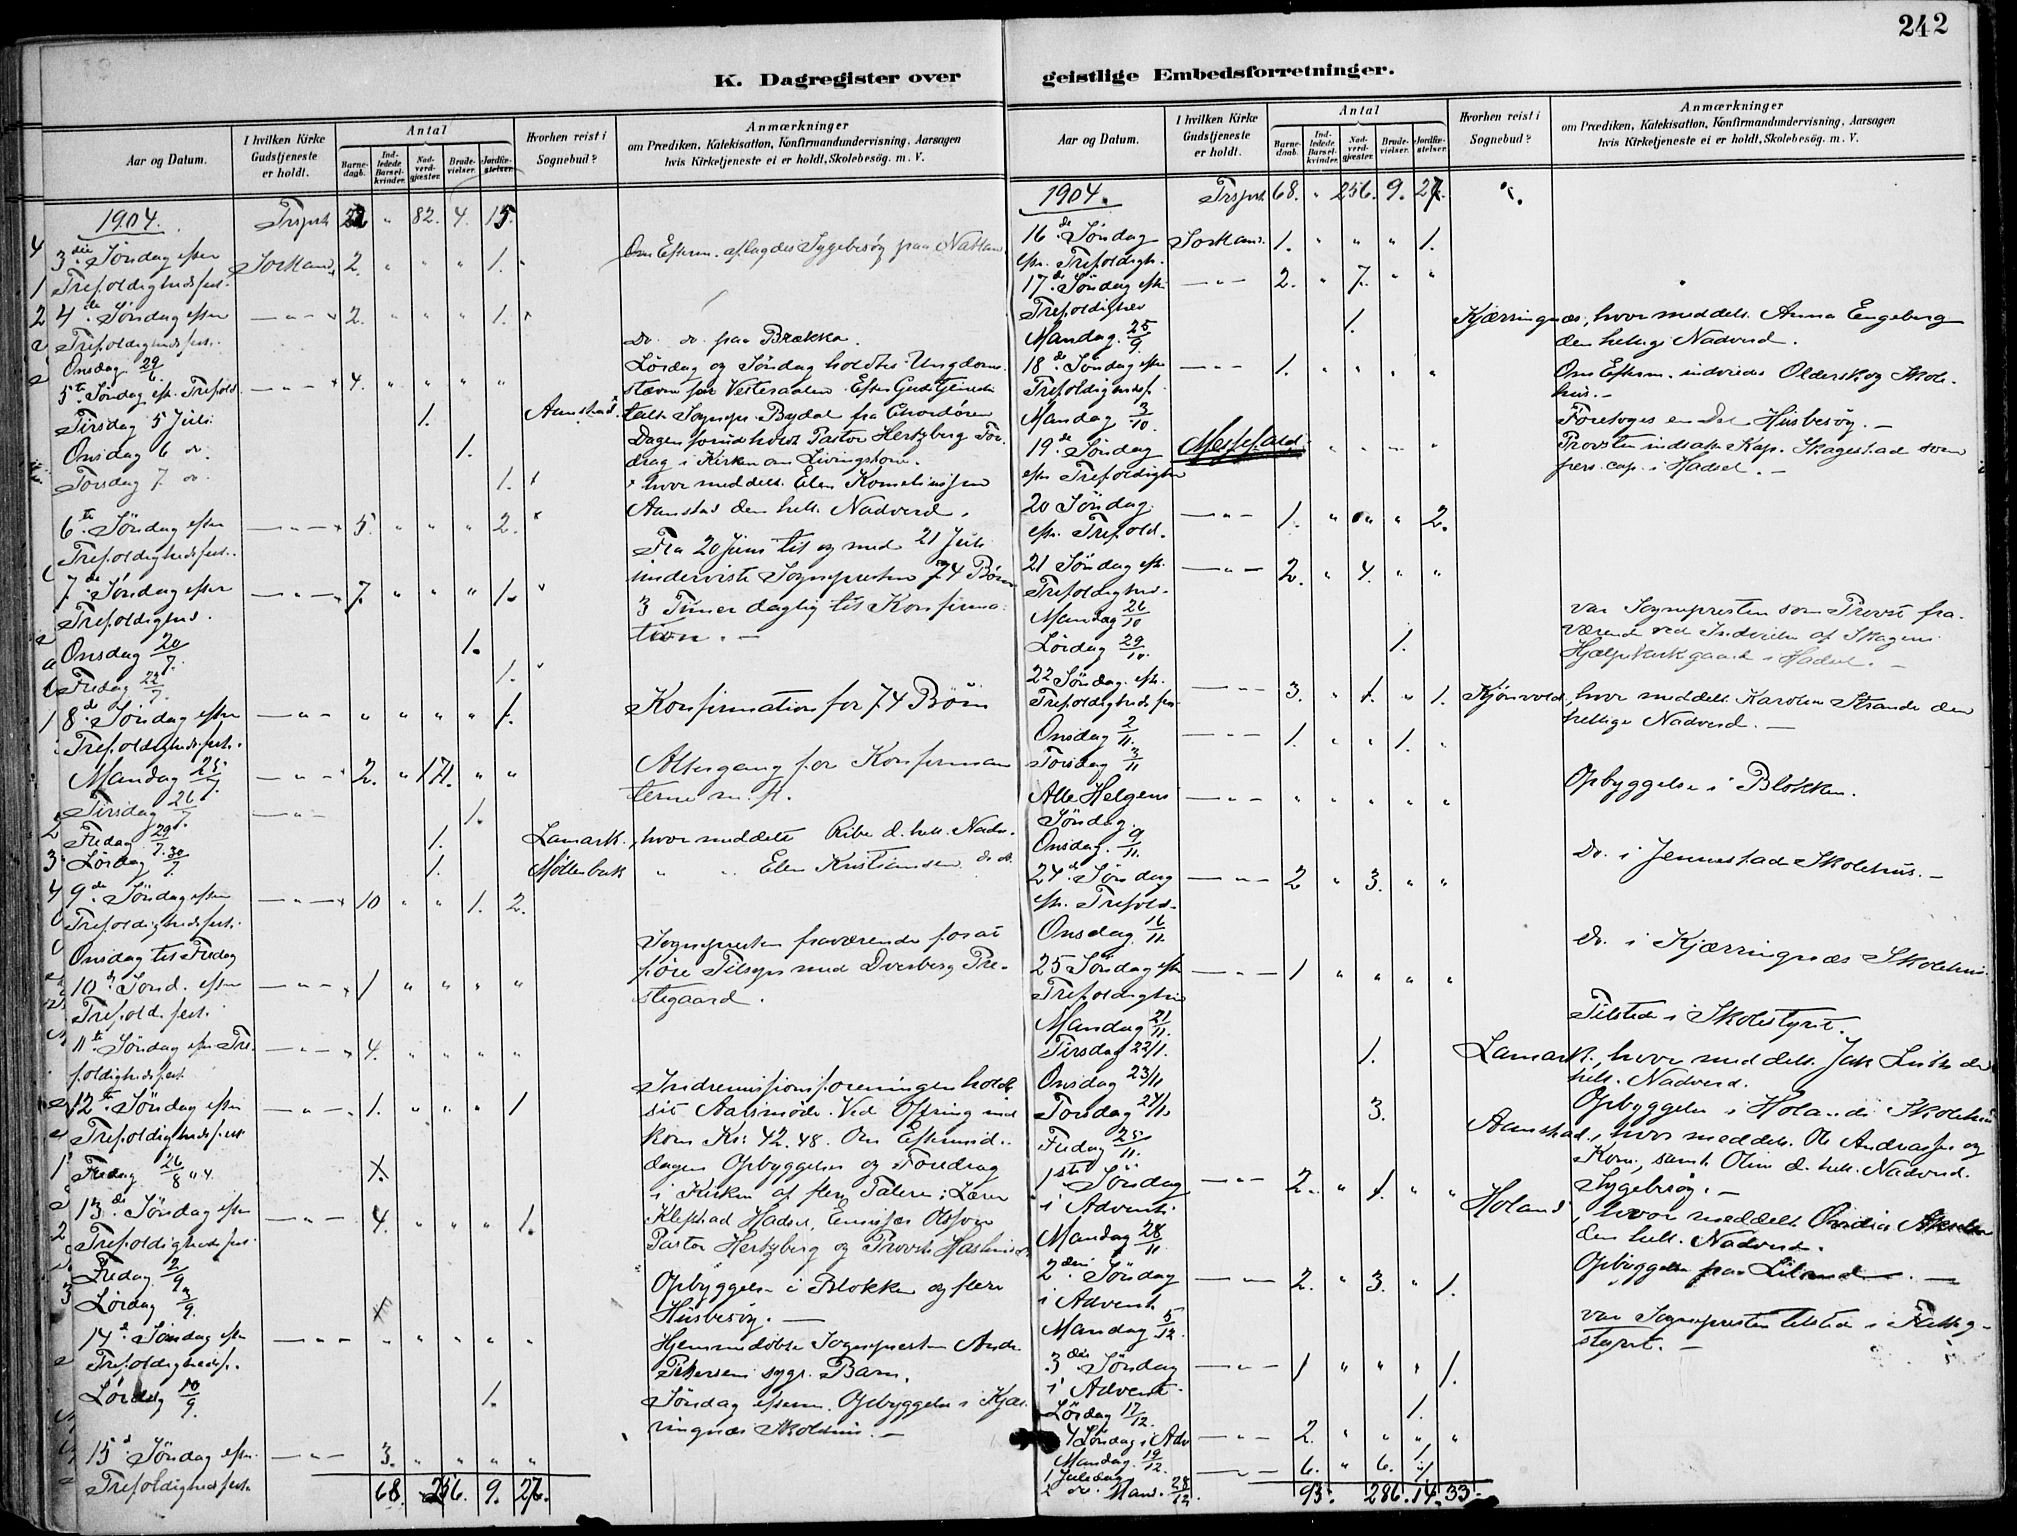 242
K. Dagregister over
geistlige Embedsforretninger.
Aar og Datum.
I hvilken Kirke Gudstjeneste er holdt.
Antal
Barnedaab.
Indledede Barselkvinder.
Nadverdgjæster.
Brudevielser.
Jordfæstelser.
Hvorhen reist i Sognebud?
Anmærkninger
om Prædiken, Katekisation, Konfirmandundervisning, Aarsagen
hvis Kirketjeneste ei er holdt, Skolebesög. m. V.
1904. Trsprt. 22 " 82. 4. 15.
3die Söndag efter Sortland 2. " " " 1. " Om Efterm. aflagdes Sygebesøg paa
Trefoldighedsfest.
4de Söndag efter — " — 2. " " " 1.
Trefoldighedsfest.
Onsdag 29/6. do. do. paa Brækka.
5te Söndag eft. Trefold. — " — 4. " " " " Lördag og Söndag holdtes Ungdoms-
stævne for Vesteraalen. Efter Gudstjeneste
Tirsdag 5 Juli 1. Aanstad talte Sognepr. Bydal fra
Onsdag 6 do. 1. Dagen forud holdt Pastor Hertzberg Fore-
drag i Kirken om Livingstone.
Torsdag 7 do. 1. hvor meddelt Elen Korneliussen
Aanstad den hell. Nadverd.
6te Söndag efter — " — 5. " " " 2.
Trefoldighedsfest. Fra 20 Juni til og med 21 Juli
7de Söndag efter — " — 7. " " " 1. underviste Sognepresten 74 Børn
Trefoldighed. 3 Timer daglig til Konfirma-
tion. —
Onsdag 20/7. 1.
Fredag 22/7. 1.
8de Söndag efter — " — " " " " 1. Konfirmation for 74 Börn
Trefoldighedsfest.
Mandag 25/7. — " — 2. " 171. " " Altergang for Konfirman-
terne m. fl.
Tirsdag 26/7. — " — 1.
Fredag 29/7. 1. Lamark, hvor meddelt Ribe d. hell. Nadv.
Lördag 30/7. 1. Møllebak " " Elen Kristiansen do do.
9de Söndag efter — " — 10 " " 1. 2.
Trefoldighedsfest.
Onsdag til Fredag Sognepresten fraværende for at
före Tilsyn med Dverberg Pre-
stegaard.
10de Sönd. efter — " — 1 " " " "
Trefold. fest.
11te Söndag efter Tre- — " — 4. " " " "
foldighedsfest
12te Söndag efter — " — 1. " " " 1 Indremissionsforeningen holdt
sit Aarsmøde. Ved Ofring ind
Trefoldighedsfest kom Kr: 42.48. Om Eftermid-
dagen Opbyggelse og Foredrag
Fredag 26/8 i Kirken af flere Talere: Lærer
13de Söndag efter — " — 4. " " " 1. Klepstad Hadsel, Emissær Olsson
Trefoldighedsfest Pastor Hertzberg og Provst
Fredag 2/9 Opbyggelse i Blokken og flere
Lördag 3/9. Husbesøg. —
14de Söndag efter — " — " " " " " Hjemmedöbte Sognepresten
Trefoldighedsf. Petersens syge Barn.
Lördag 10/9. 1. Söndag efterm. Opbyggelse i Kjær-
ringnæs Skolehus. —
15de Söndag efter — " — 3. " " " "
Trefoldighedsfest.
68. 256. 9. 27.
Aar og Datum.
I hvilken Kirke Gudstjeneste er holdt.
Antal
Barnedaab.
Indledede Barselkvinder.
Nadverdgjæster.
Brudevielser.
Jordfæstelser.
Hvorhen reist i Sognebud?
Anmærkninger
om Prædiken, Katekisation, Konfirmandundervisning, Aarsagen
hvis Kirketjeneste ei er holdt, Skolebesög. m. V.
1904. Trsprt. 68. " 256. 9. 27.
16de Söndag Sortland. 1. " " " 1.
eftr. Trefoldigh.
17de Söndag eft. — " — 2. " 7. " "
Trefoldighed
Mandag 25/9 1. Kjærringnæs, hvor meddelt Anna Engeberg
den hellige Nadverd.
18de Söndag eft. — " — 1. " " " " Om Efterm. indviedes Olderskog Skole-
Trefoldighedsf. hus. —
Mandag 3/10. Foretoges en Del Husbesøg. —
19de Söndag Messefald. " " " " Provsten indsatte Kap. Skagestad som
eftr. Trefoldighed pers. cap. i Hadsel. —
20 Söndag — " — 1. " " " 2.
eftr. Trefold.
21 Söndag eft. — " — 2. " 4. " "
Trefoldighed.
Mandag 26/10 var Sognepresten som Provst fra-
værende ved Indvielse af Skagens
Lördag 29/10. 1. Hjælpekirkegaard i Hadsel. —
22 Söndag eft. — " — 3. " 1. " 1. Kjönvold, hvor meddelt Karoline Strande den
Trefoldighedsfest hellige Nadverd. —
Onsdag 2/11. — " — 1. " " 1. "
Torsdag 3/11 Opbyggelse i Blokken.
Alle Helgens — " — " " " " "
Söndag.
Onsdag 9/11. Do. i Jennestad Skolehus. —
24de Söndag — " — 2 " 3. " "
eftr. Trefold.
Onsdag 16/11. Do. i Kjærringnæs Skolehus.
25 Söndag eft — " — 1 " " " "
Trefoldighed
Mandag 21/11. Tilstede i Skolestyret.
Tirsdag 22/11. 1. Lamark, hvor meddelt Jak den
Onsdag 23/11 hell. Nadverd.
Torsdag 24/11. 3. Opbyggelse i Holand Skolehus
Fredag 25/11. Aanstad, hvor meddelt Ole Andreassen og
Kone, samt Oline d. hell. Nadverd.
1ste Söndag — " — 2. " 1. " " Sygebesøg. —
i Advent. Holand, hvor meddelt Ovidia
Mandag 28/11 den hell. Nadverd.
2den Söndag — " — 2. " 3. " 1. Opbyggelse paa Liland. —
i Advent
Mandag 5/12. var Sognepresten tilstede i Fattig-
styret. —
3die Söndag — " — 1 " " " 1.
i Advent.
Lördag 17/12. 1.
4 Söndag i Adv — " — 2. " " " "
Mandag 19/12. 1
1 Juledag — " — 6. " 6. "
2 do. Mand. 28/12.
93. 286. 14. 33.